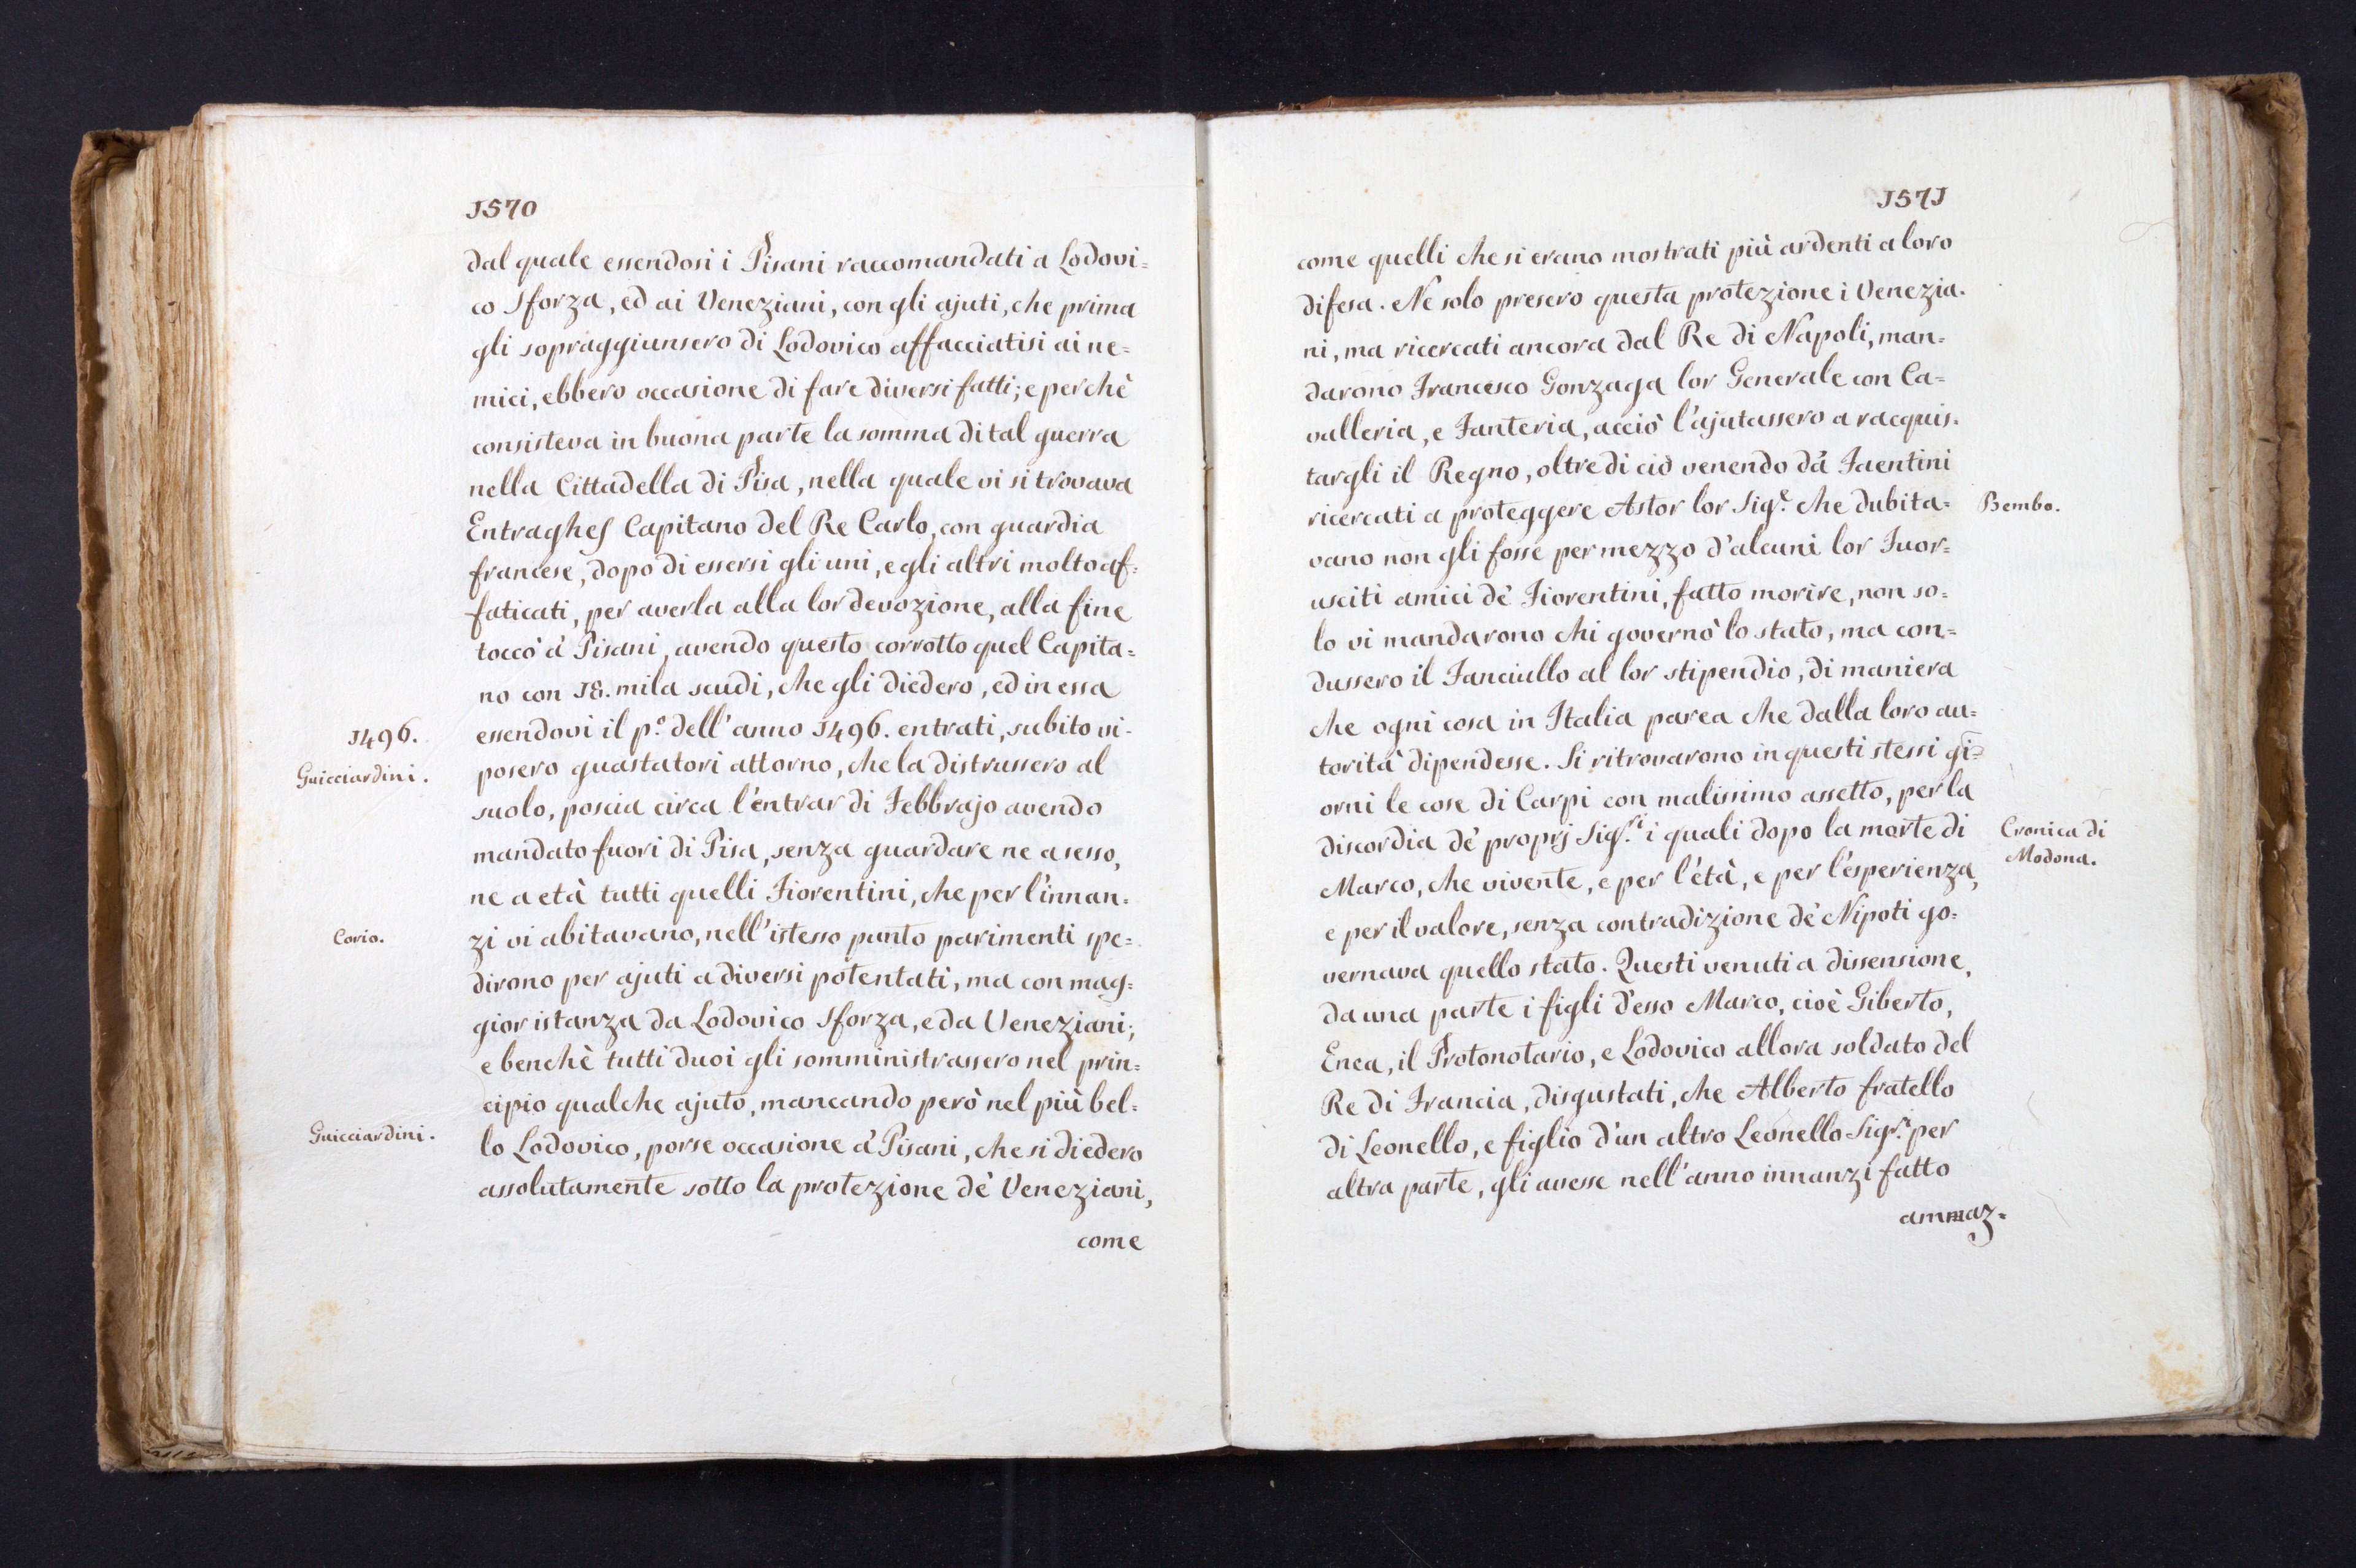 1570
dal quale essendosi i Pisani raccomandati a Lodovi=
co Sforza, ed ai Veneziani, con gli ajuti, che prima
gli sopraggiunsero di Lodovico affacciatisi ai ne=
mici, ebbero occasione di fare diversi fatti; e perchè
consisteva in buona parte la somma di tal guerra
nella Cittadella di Pisa, nella quale vi si trovava
Entraghes Capitano del Re Carlo, con guardia
francese, dopo di essersi gli uni, e gli altri molto af=
faticati, per averla alla lor devozione, alla fine
toccò a' Pisani, avendo questo corrotto quel Capita=
no con 18. mila scudi, che gli diedero, ed in essa
1496.
essendovi il p.º dell'anno 1496. entrati, subito vi
Guicciardini.
posero guastatori attorno, che la distrussero al
suolo, poscia circa l'entrar di Febbrajo avendo
mandato fuori di Pisa, senza guardare ne a sesso,
ne a età tutti quelli Fiorentini, che per l'innan=
Corio.
zi vi abitavano, nell'istesso punto parimenti spe=
dirono per ajuti a diversi potentati, ma con mag=
gior istanza da Lodovico Sforza, e da Veneziani;
e benchè tutti duoi gli somministrassero nel prin=
cipio qualche ajuto, mancando però nel più bel=
Guicciardini.
lo Lodovico, porse occasione a' Pisani, che si diedero
assolutamente sotto la protezione de' Veneziani,
come
1571
come quelli che si erano mostrati più ardenti a loro
difesa. Ne solo presero questa protezione i Venezia=
ni, ma ricercati ancora dal Re di Napoli, man=
darono Francesco Gonzaga lor Generale con Ca=
valleria, e Fanteria, acciò l'ajutassero a racquis=
targli il Regno, oltre di ciò venendo da' Faentini
ricercati a proteggere Astor lor Sig.e che dubita=
Bembo.
vano non gli fosse per mezzo d'alcuni lor Fuor=
usciti amici de' Fiorentini, fatto morire, non so=
lo vi mandarono chi governò lo stato, ma con=
dussero il Fanciullo al lor stipendio, di maniera
che ogni cosa in Italia parea che dalla loro au=
torità dipendesse. Si ritrovarono in questi stessi gi=
orni le cose di Carpi con malissimo assetto, per la
discordia de' proprj Sig.ri i quali dopo la morte di
Cronica di
Modona.
Marco, che vivente, e per l'età, e per l'esperienza,
e per il valore, senza contradizione de' Nipoti go=
vernava quello stato. Questi venuti a dissensione,
da una parte i figli d'esso Marco, cioè Giberto,
Enea, il Protonotario, e Lodovico allora soldato del
Re di Francia, disgustati, che Alberto fratello
di Leonello, e figlio d'un altro Leonello Sig.ri per
altra parte, gli avesse nell'anno innanzi fatto
ammaz=